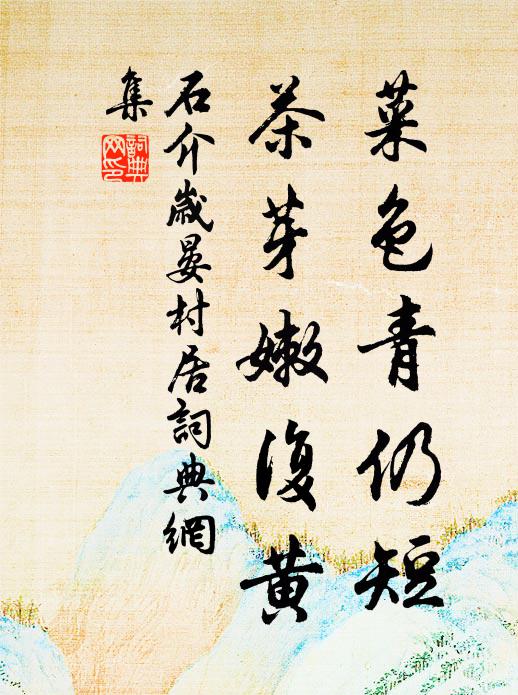 菜色青仍短
茶芽嫩復黃
石介歲晏村居詞典網
集
詞典網印